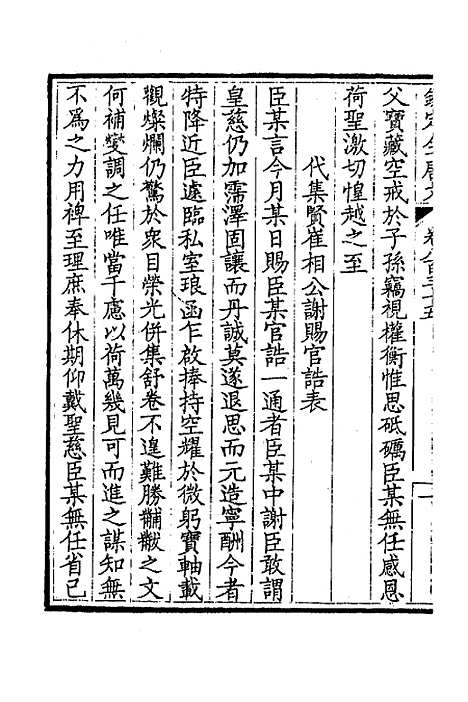 欽定全唐文 卷八百三十五
父寶藏空戒於子孫竊視權衡惟思砥礪臣某無任感恩
荷聖激切惶越之至
代集賢崔相公謝賜官誥表
臣某言今月某日賜臣某官誥一通者臣某中謝臣敢謂
皇慈仍加霈澤固讓而丹誠莫遂退思而元造寧酬今者
特降近臣遽臨私室琅函乍啟捧持空耀於微躬寶軸載
觀燦爛仍驚於衆目榮光併集舒卷不遑難勝黼黻之文
何補變調之任唯當千慮以荷萬幾見可而進之謀知無
不為之力用裨至理庶奉休期仰戴聖慈臣某無任省己